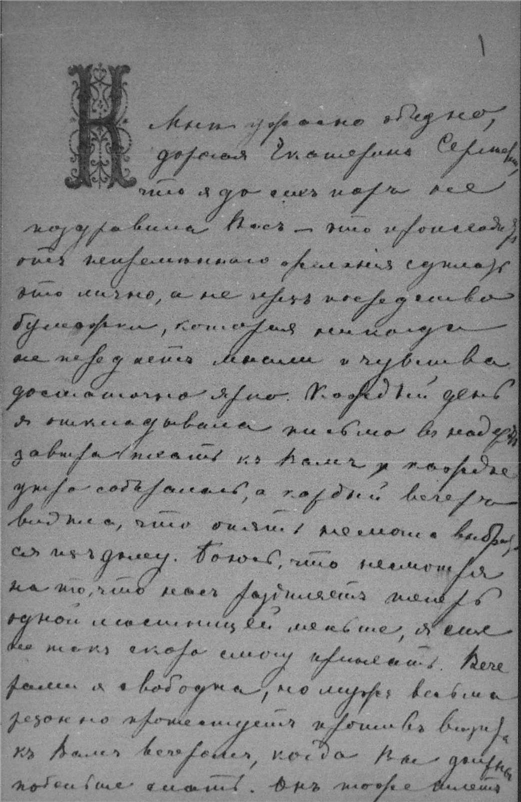 1
К
Мнѣ ужасно обидно,
дорогая Екатерина Сергѣевна,
что я до сихъ поръ не
поздравила Васъ — это происходитъ
отъ непремѣннаго желанія сдѣлать
это лично, а не чрезъ посредство
бумажки, которая никогда
не передаетъ мысли и чувства
достаточно ярко. Каждый день
я откладывала письмо въ надеждѣ
завтра ѣхать къ Вамъ и каждое
утро собиралась, а каждый вечеръ
видѣла, что опять не могла выбрать
ся изъ дому. Боюсь, что несмотря
на то, что насъ раздѣляетъ теперь
одной лѣстницей меньше, я еще
не такъ скоро смогу пріѣхать. Вече
рами я свободна, но мужъ весьма
резонно протестуетъ противъ визита
къ Вамъ вечеромъ, когда Вы должны
побольше спать. Онъ тоже